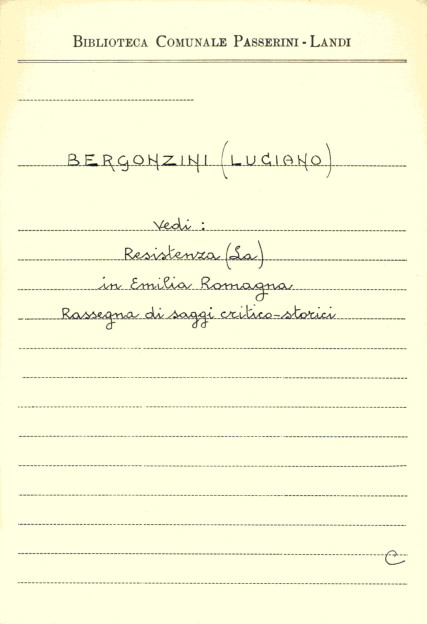 BIBLIOTECA COMUNALE PASSERINI - LANDI
BERGONZINI (LUCIANO)
vedi :
Resistenza (La)
in Emilia Romagna
Rassegna di saggi critico-storici
C